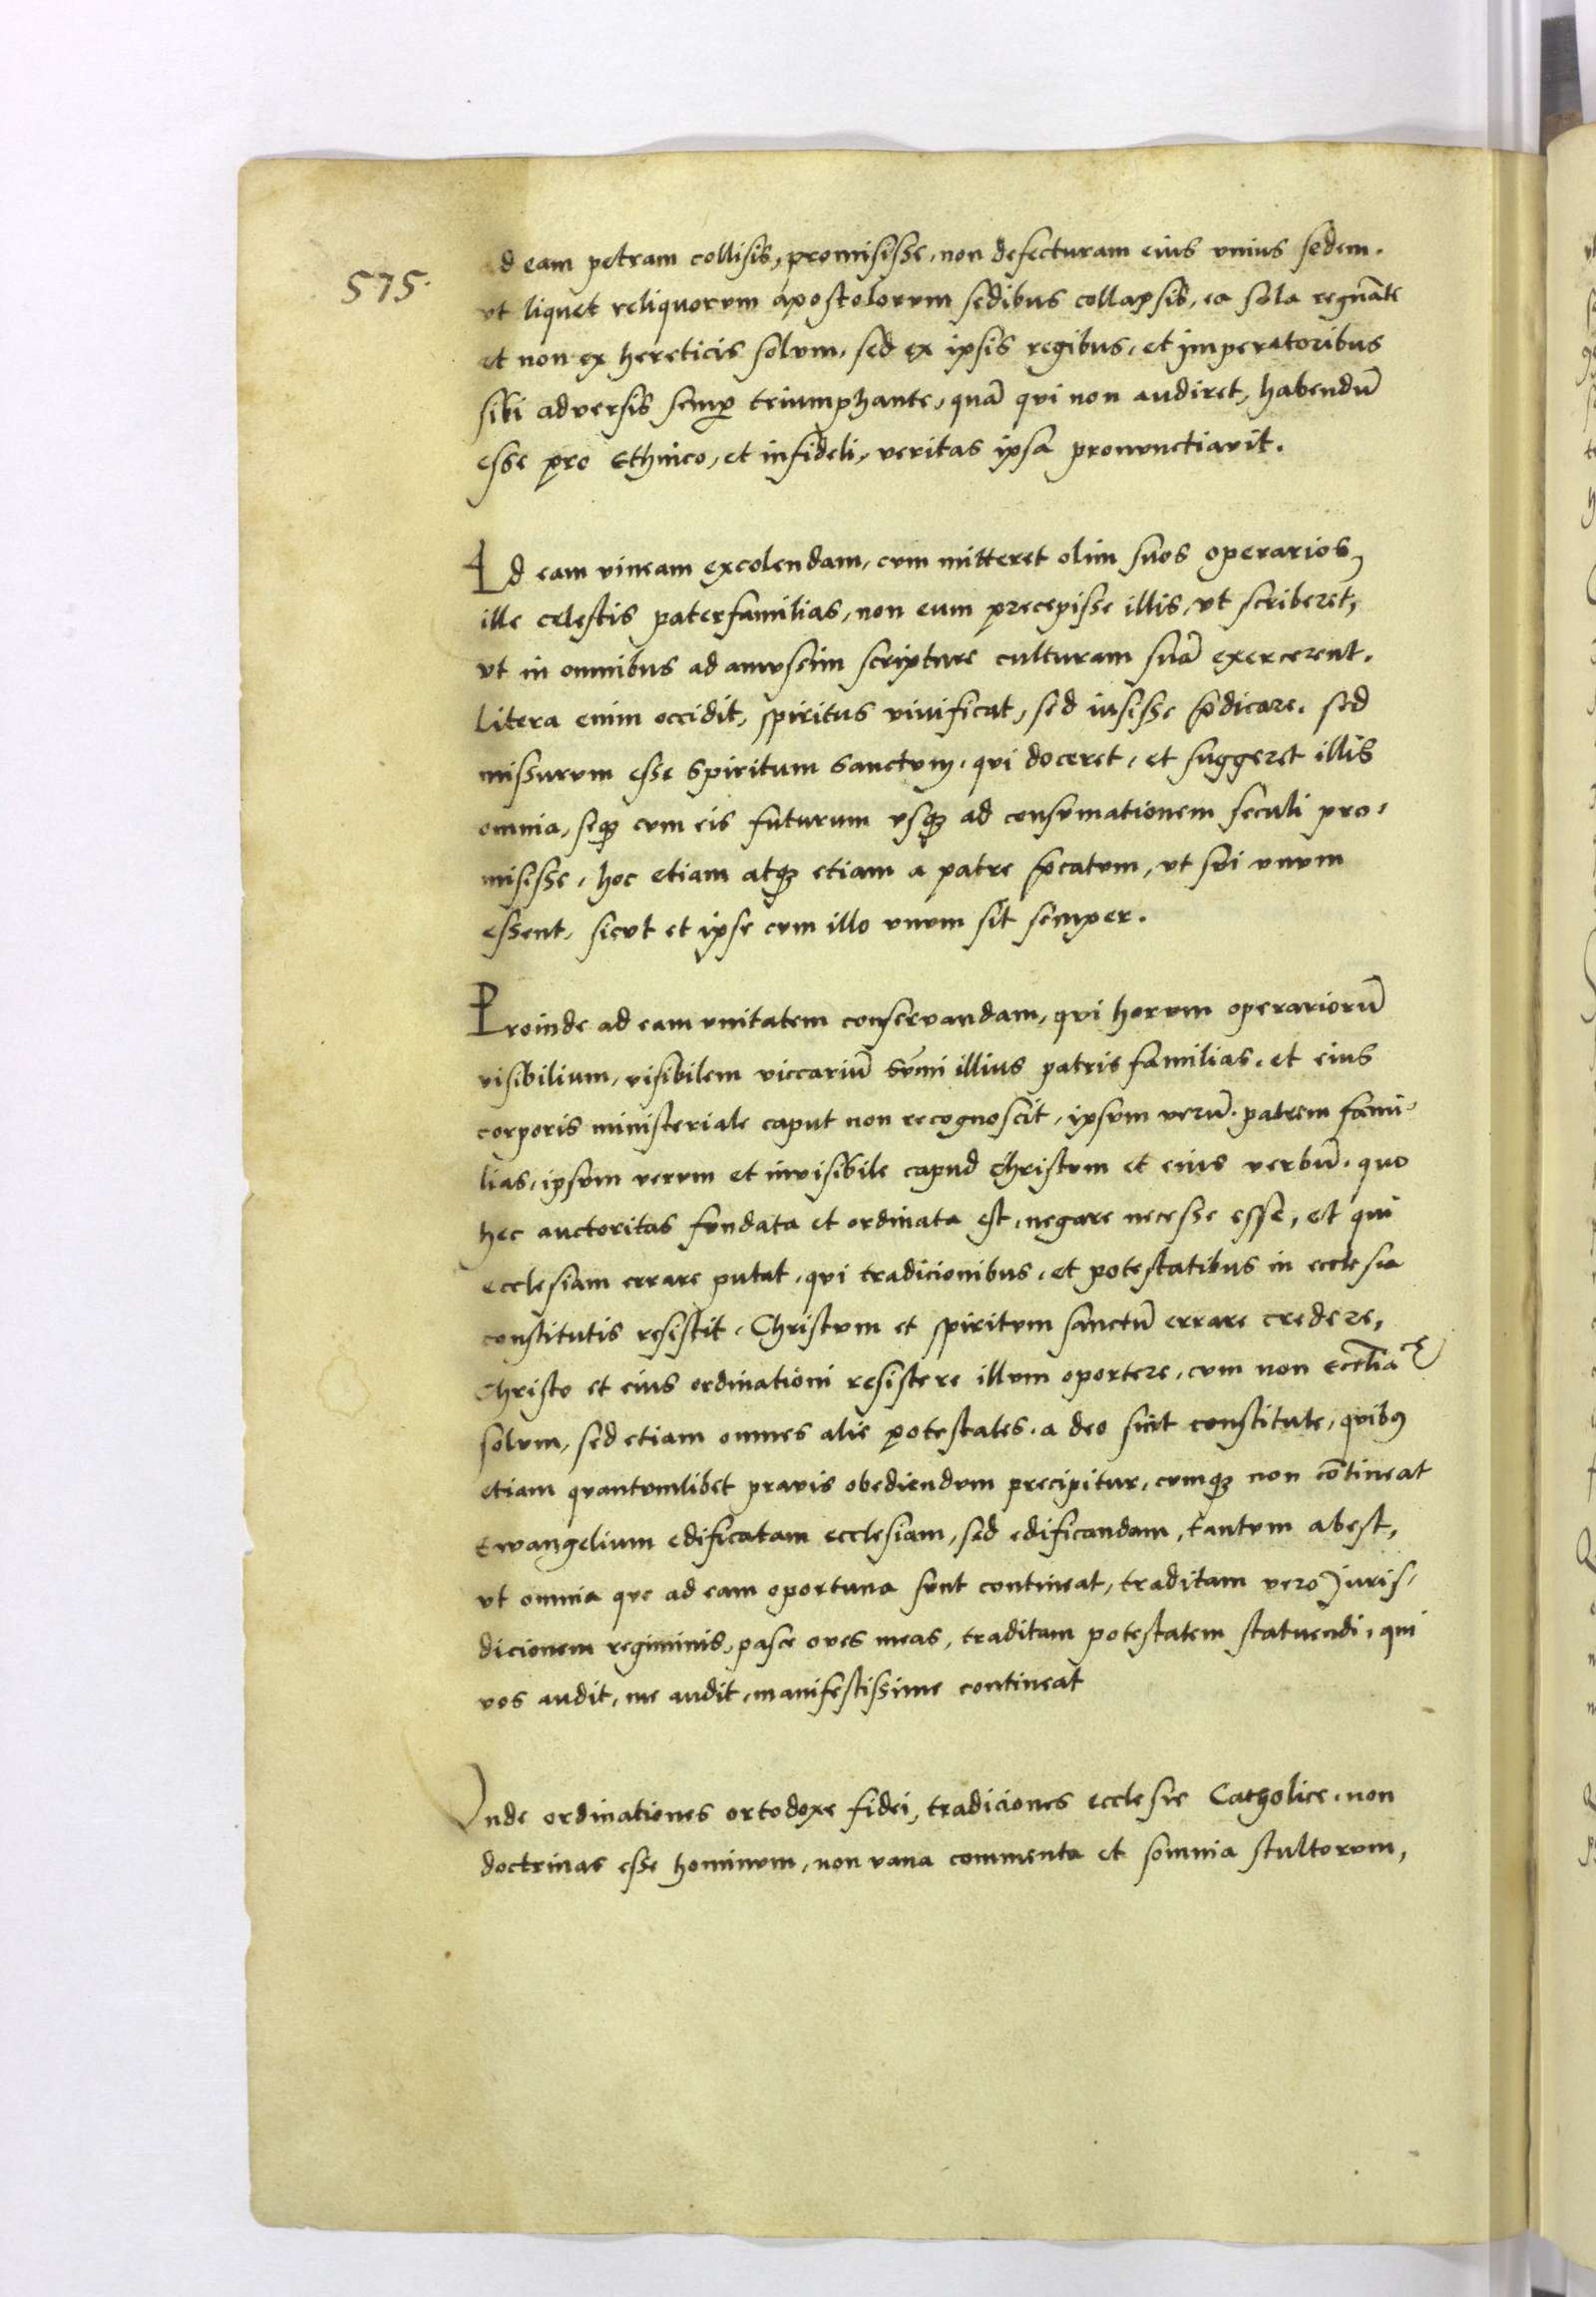 575.
ad eam petram collisis, promisisse, non defecturam eius vnius sedem.
vt liquet reliquorvm apostolorvm sedibus collapsis, ea sola regnāte
et non ex hereticis solvm, sed ex ipsis regibus, et imperatoribus
sibi adversis semp̄ triumphante, quā qvi non audiret, habendū
esse pro Ethnico, et infideli, veritas ipsa pronvnctiavit.
Ad eam vineam excolendam, cvm mitteret olim suos operarios,
ille celestis paterfamilias, non eum precepisse illis, vt scriberēt,
vt in omnibus ad amvssim scripture culturam suā exercerent.
Litera enim occidit, spiritus viuificat, sed iusisse p̄dicare. sed
missurvm esse Spiritum Sanctvm, qvi doceret, et suggeret illis
omnia, seqꝫ cvm eis futurum vsqꝫ ad consvmationem seculi pro-
misisse, hoc etiam atqꝫ etiam a patre p̄catvm, vt svi vnvm
essent, sicvt et ipse cvm illo vnvm sit semper.
Proinde ad eam vnitatem conservandam, qvi horvm operariorū
visibilium, visibilem viccariū sūmi illius patris familias. et eius
corporis ministeriale caput non recognoscit, ipsvm verū. patrem fami-
lias, ipsvm vervm et invisibile capud Christvm et eius verbū. quo
hec auctoritas fvndata et ordinata est, negare necesse esse, et qui
ecclesiam errare putat, qvi tradicionibus, et potestatibus in ecclesia
constitutis resistit, Christvm et spiritvm sanctū errare credere,
Christo et eius ordinationi resistere illvm oportere, cvm non Eccl̄iace
solvm, sed etiam omnes alie potestates. a deo sint constitute, qvibꝯ
etiam qvantvmlibet pravis obediendvm precipitur, cvmqꝫ non cōtineat
Ewangelium edificatam ecclesiam, sed edificandam, tantvm abest,
vt omnia qve ad eam oportuna svnt contineat, traditam vero Juris-
dicionem regiminis, pasce oves meas, traditam potestatem statvendi, qui
vos audit, me audit, manifestissime contineat
Vnde ordinationes ortodoxe fidei, tradiciones ecclesie Catholice. non
doctrinas esse hominvm, non vana commenta et somnia stultorvm,